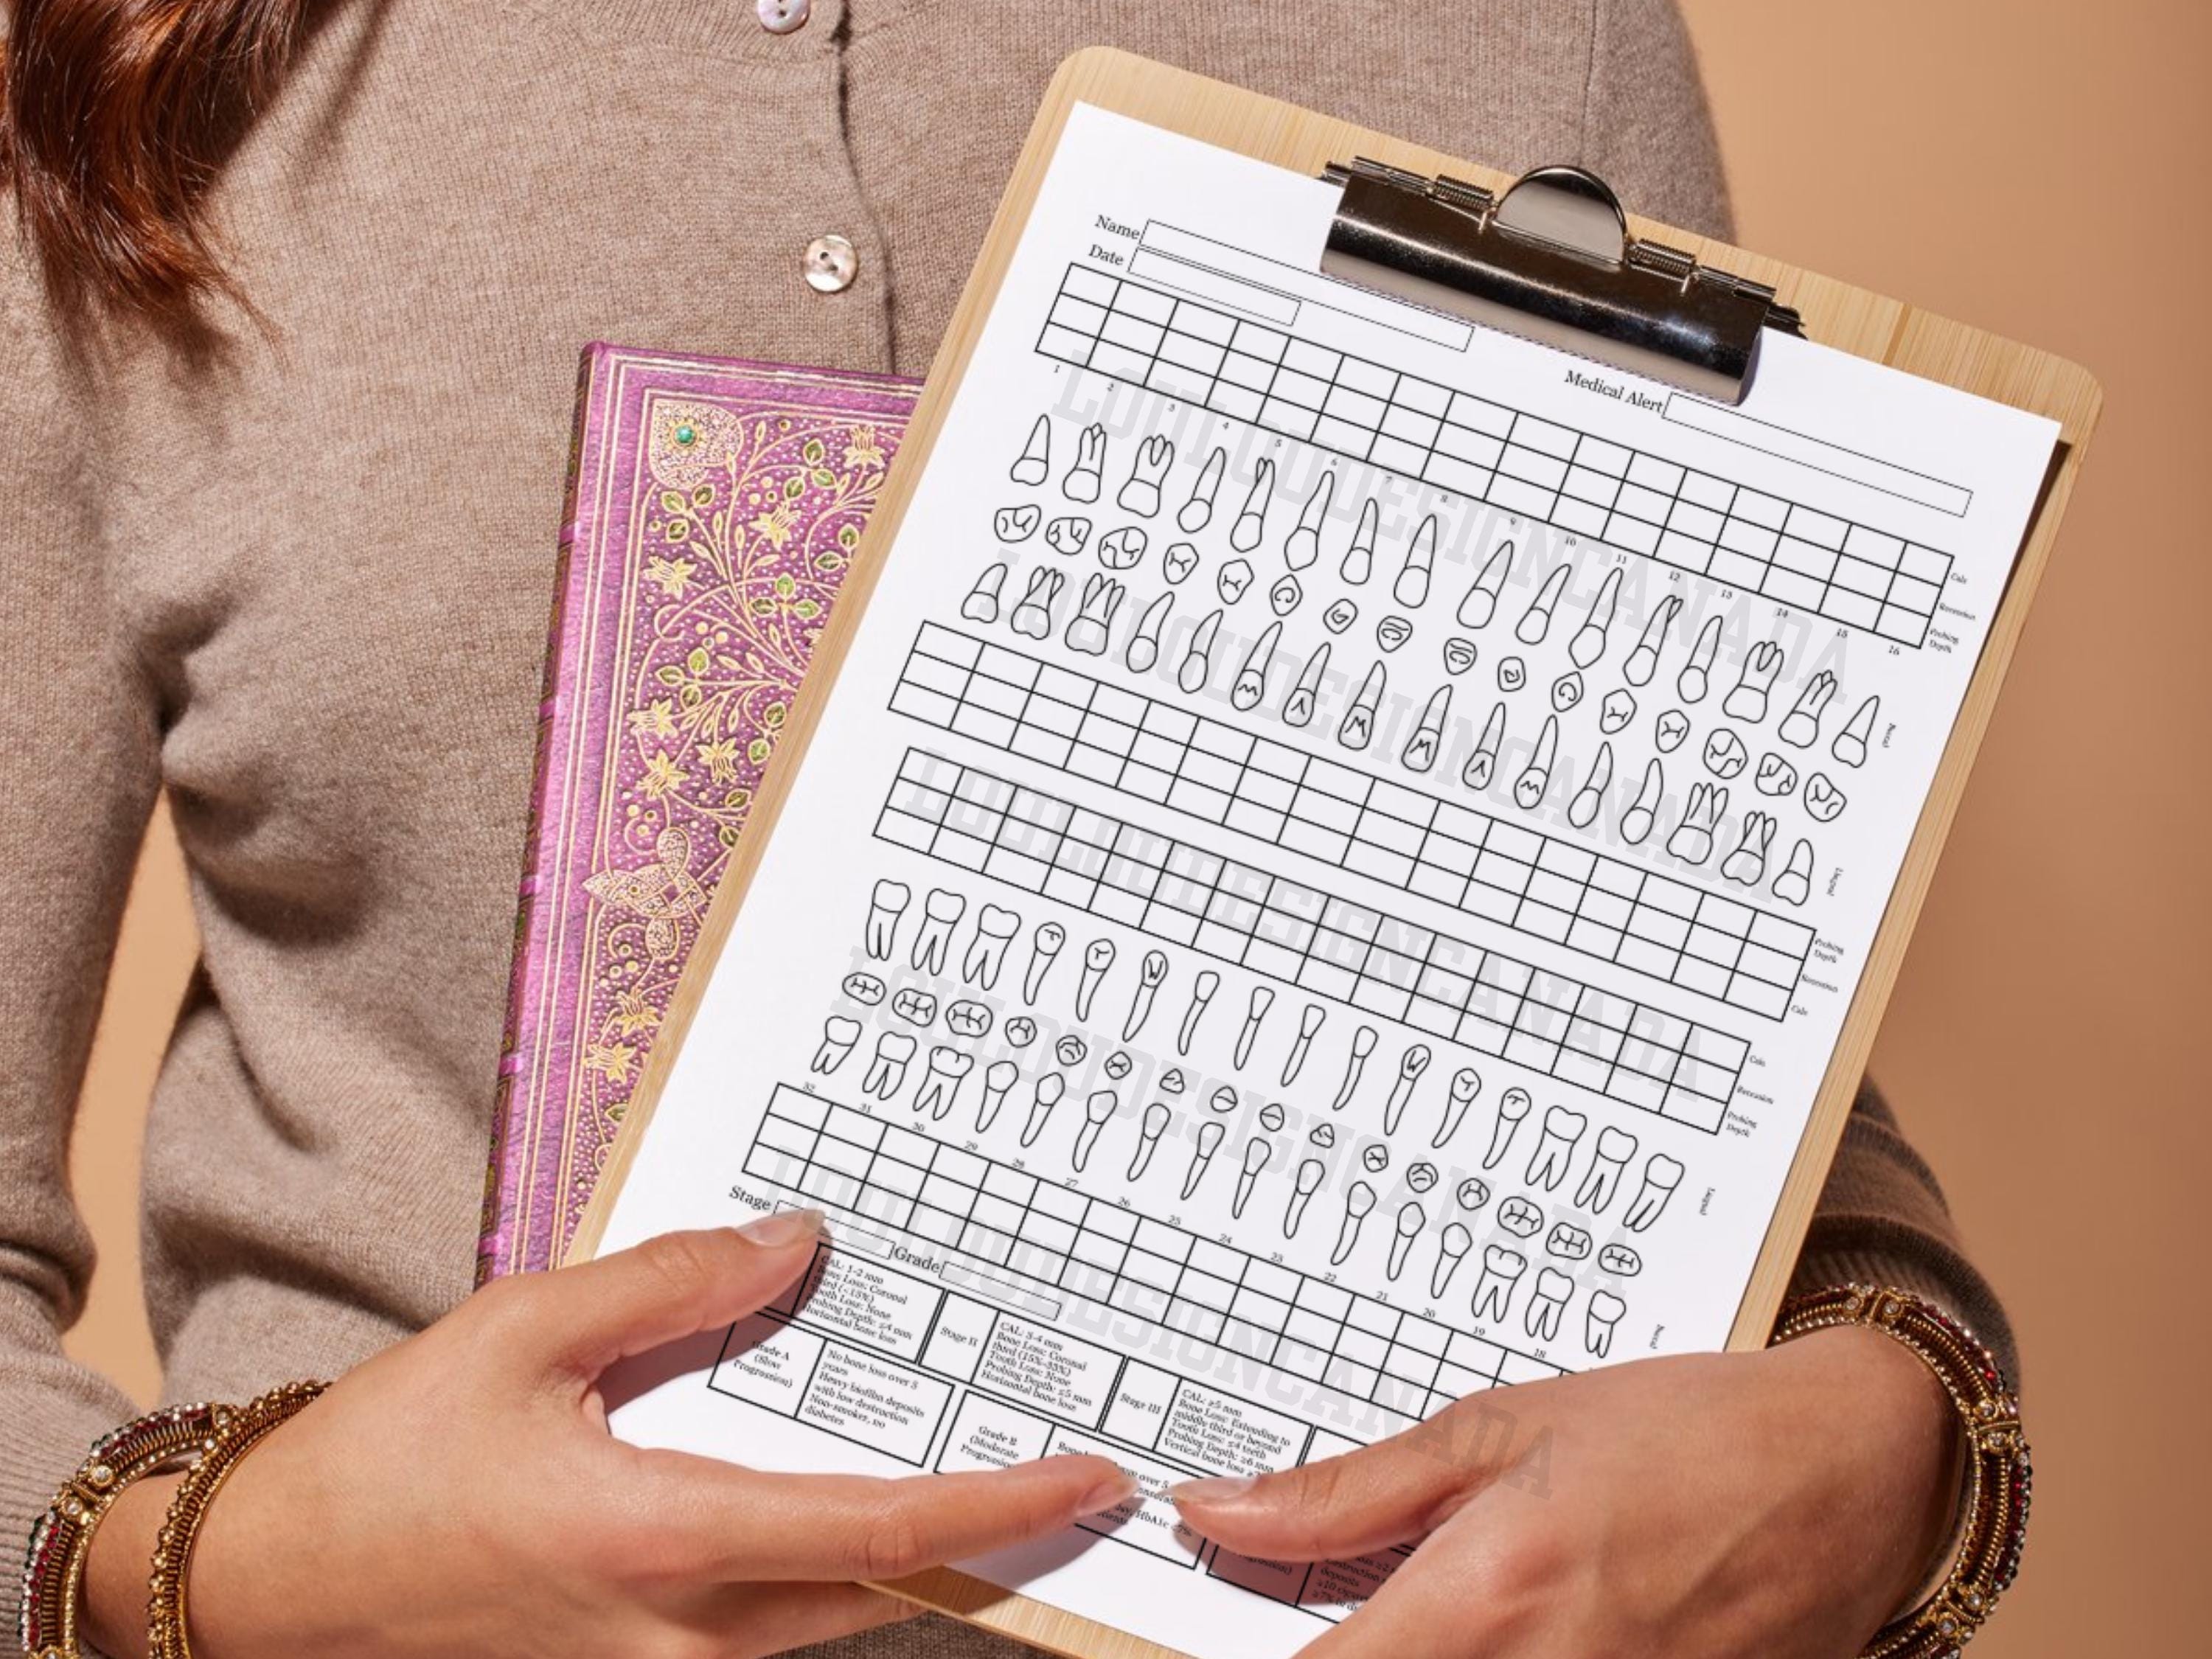 Name
Date
Medical Alert
1 2 3 4 5 6 7 8 9 10 11 12 13 14 15 16
Cals
Recession
Probing
Depth
Buccal
Lingual
Probing
Depth
Recession
Cals
Cals
Recession
Probing
Depth
Lingual
Buccal
32 31 30 29 28 27 26 25 24 23 22 21 20 19 18
Stage
Grade
CAL: 1-2 mm
Bone Loss: Coronal
third (<15%)
Tooth Loss: None
Probing Depth: ≤4 mm
Horizontal bone loss
Stage II
CAL: 3-4 mm
Bone Loss: Coronal
third (15%-33%)
Tooth Loss: None
Probing Depth: ≤5 mm
Horizontal bone loss
Stage III
CAL: ≥5 mm
Bone Loss: Extending to
middle third or beyond
Tooth Loss: ≤4 teeth
Probing Depth: ≥6 mm
Vertical bone loss
Grade A
(Slow
Progression)
No bone loss over 5
years
Heavy biofilm deposits
with low destruction
Non-smoker, no
diabetes
Grade B
(Moderate
Progression)
over 5
HbA1c <7%
deposits
LOULOUDESIGNCANADA
LOULOUDESIGNCANADA
LOULOUDESIGNCANADA
LOULOUDESIGNCANADA
LOULOUDESIGNCANADA